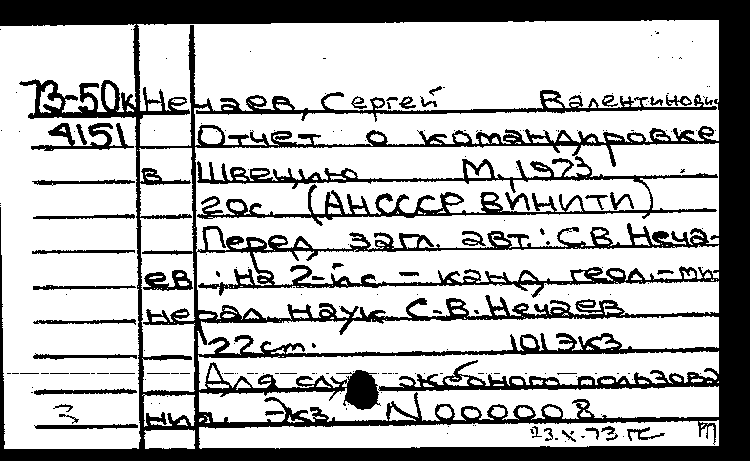 73-50к Нечаев, Сергей Валентинович
4151 Отчет о командировке
в Швецию М., 1973.
20с. (АНСССР. ВИНИТИ).
Перед загл. авт.: С.В. Неча-
ев.; на 2-й с. - канд. геол.-ми-
нерал. наук С.В. Нечаев
22см. 101 экз.
Для служебного пользова
3 ния. Экз. N 000008.
23.X.73 гс РП